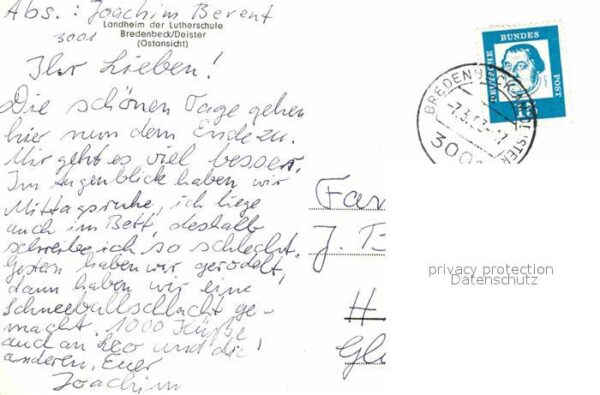 Abs.: Joachim Berent
Landheim der Lutherschule
3001
Bredenbeck/Deister
(Ostansicht)
Ihr Lieben!
Die schönen Tage gehen
hier nun dem Ende zu.
Mir geht es viel besser.
Im Augenblick haben wir
Mittagsruhe, ich liege
auch im Bett, deshalb
schreibe ich so schlecht.
Gestern haben wir gerodelt,
dann haben wir eine
Schneeballschlacht ge-
macht. 1000 Küße
auch an Leo und die
anderen, Euer
Joachim
DEUTSCHE BUNDES POST
15
BREDENBECK
3001
Fam
J. B
H
privacy protection
Datenschutz